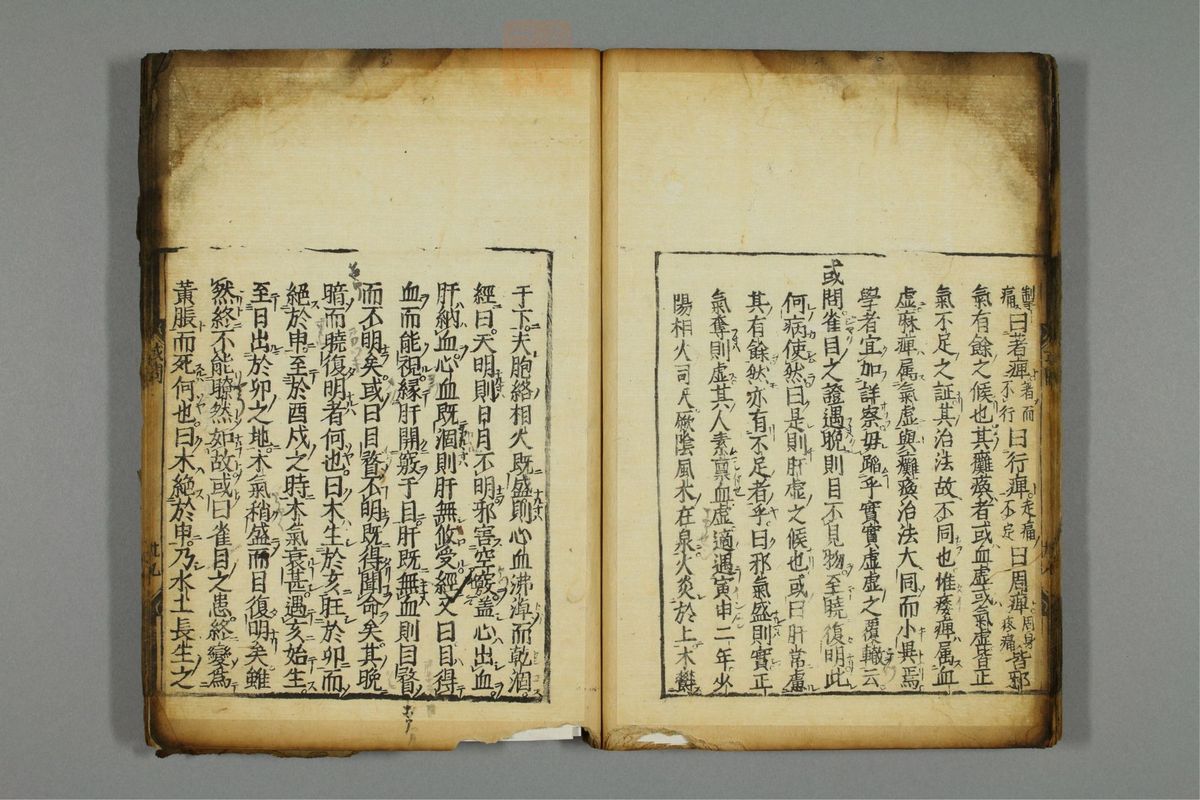 掣痛曰著痺著而不行曰行痺走痛不定曰周痺周身疼痛皆邪
氣有餘之候也其癱瘓者或血虛或氣虛皆正
氣不足之証其治法故不同也惟痿痺属血
虛麻痺属氣虛與癱瘓治法大同而小異焉
學者宜加詳察毋蹈乎實實虛虛之覆轍云
或問雀目之證遇晚則目不見物至曉復明此
何病使然曰是則肝虛之候也或曰肝常慮
其有餘然亦有不足者乎曰邪氣盛則實正
氣奪則虛其人素禀血虛適遇寅申二年少
陽相火司天厥陰風木在泉火炎於上木鬱
于下夫胞絡相火既盛則心血沸淖而乾涸
經曰天明則日月不明邪害空竅蓋心出血
肝納血心血既涸則肝無攸受經又曰目得
血而能視緣肝開竅于目肝既無血則目瞀
而不明矣或曰目瞀不明既得聞命矣其晚
暗而曉復明者何也曰木生於亥旺於卯而
絕於申至於酉戌之時木氣衰甚遇亥始生
至日出於卯之地木氣稍盛而目復明矣雖
然終不能瞭然如故或曰雀目之患終變為
黃脹而死何也曰木絕於申乃水土長生之